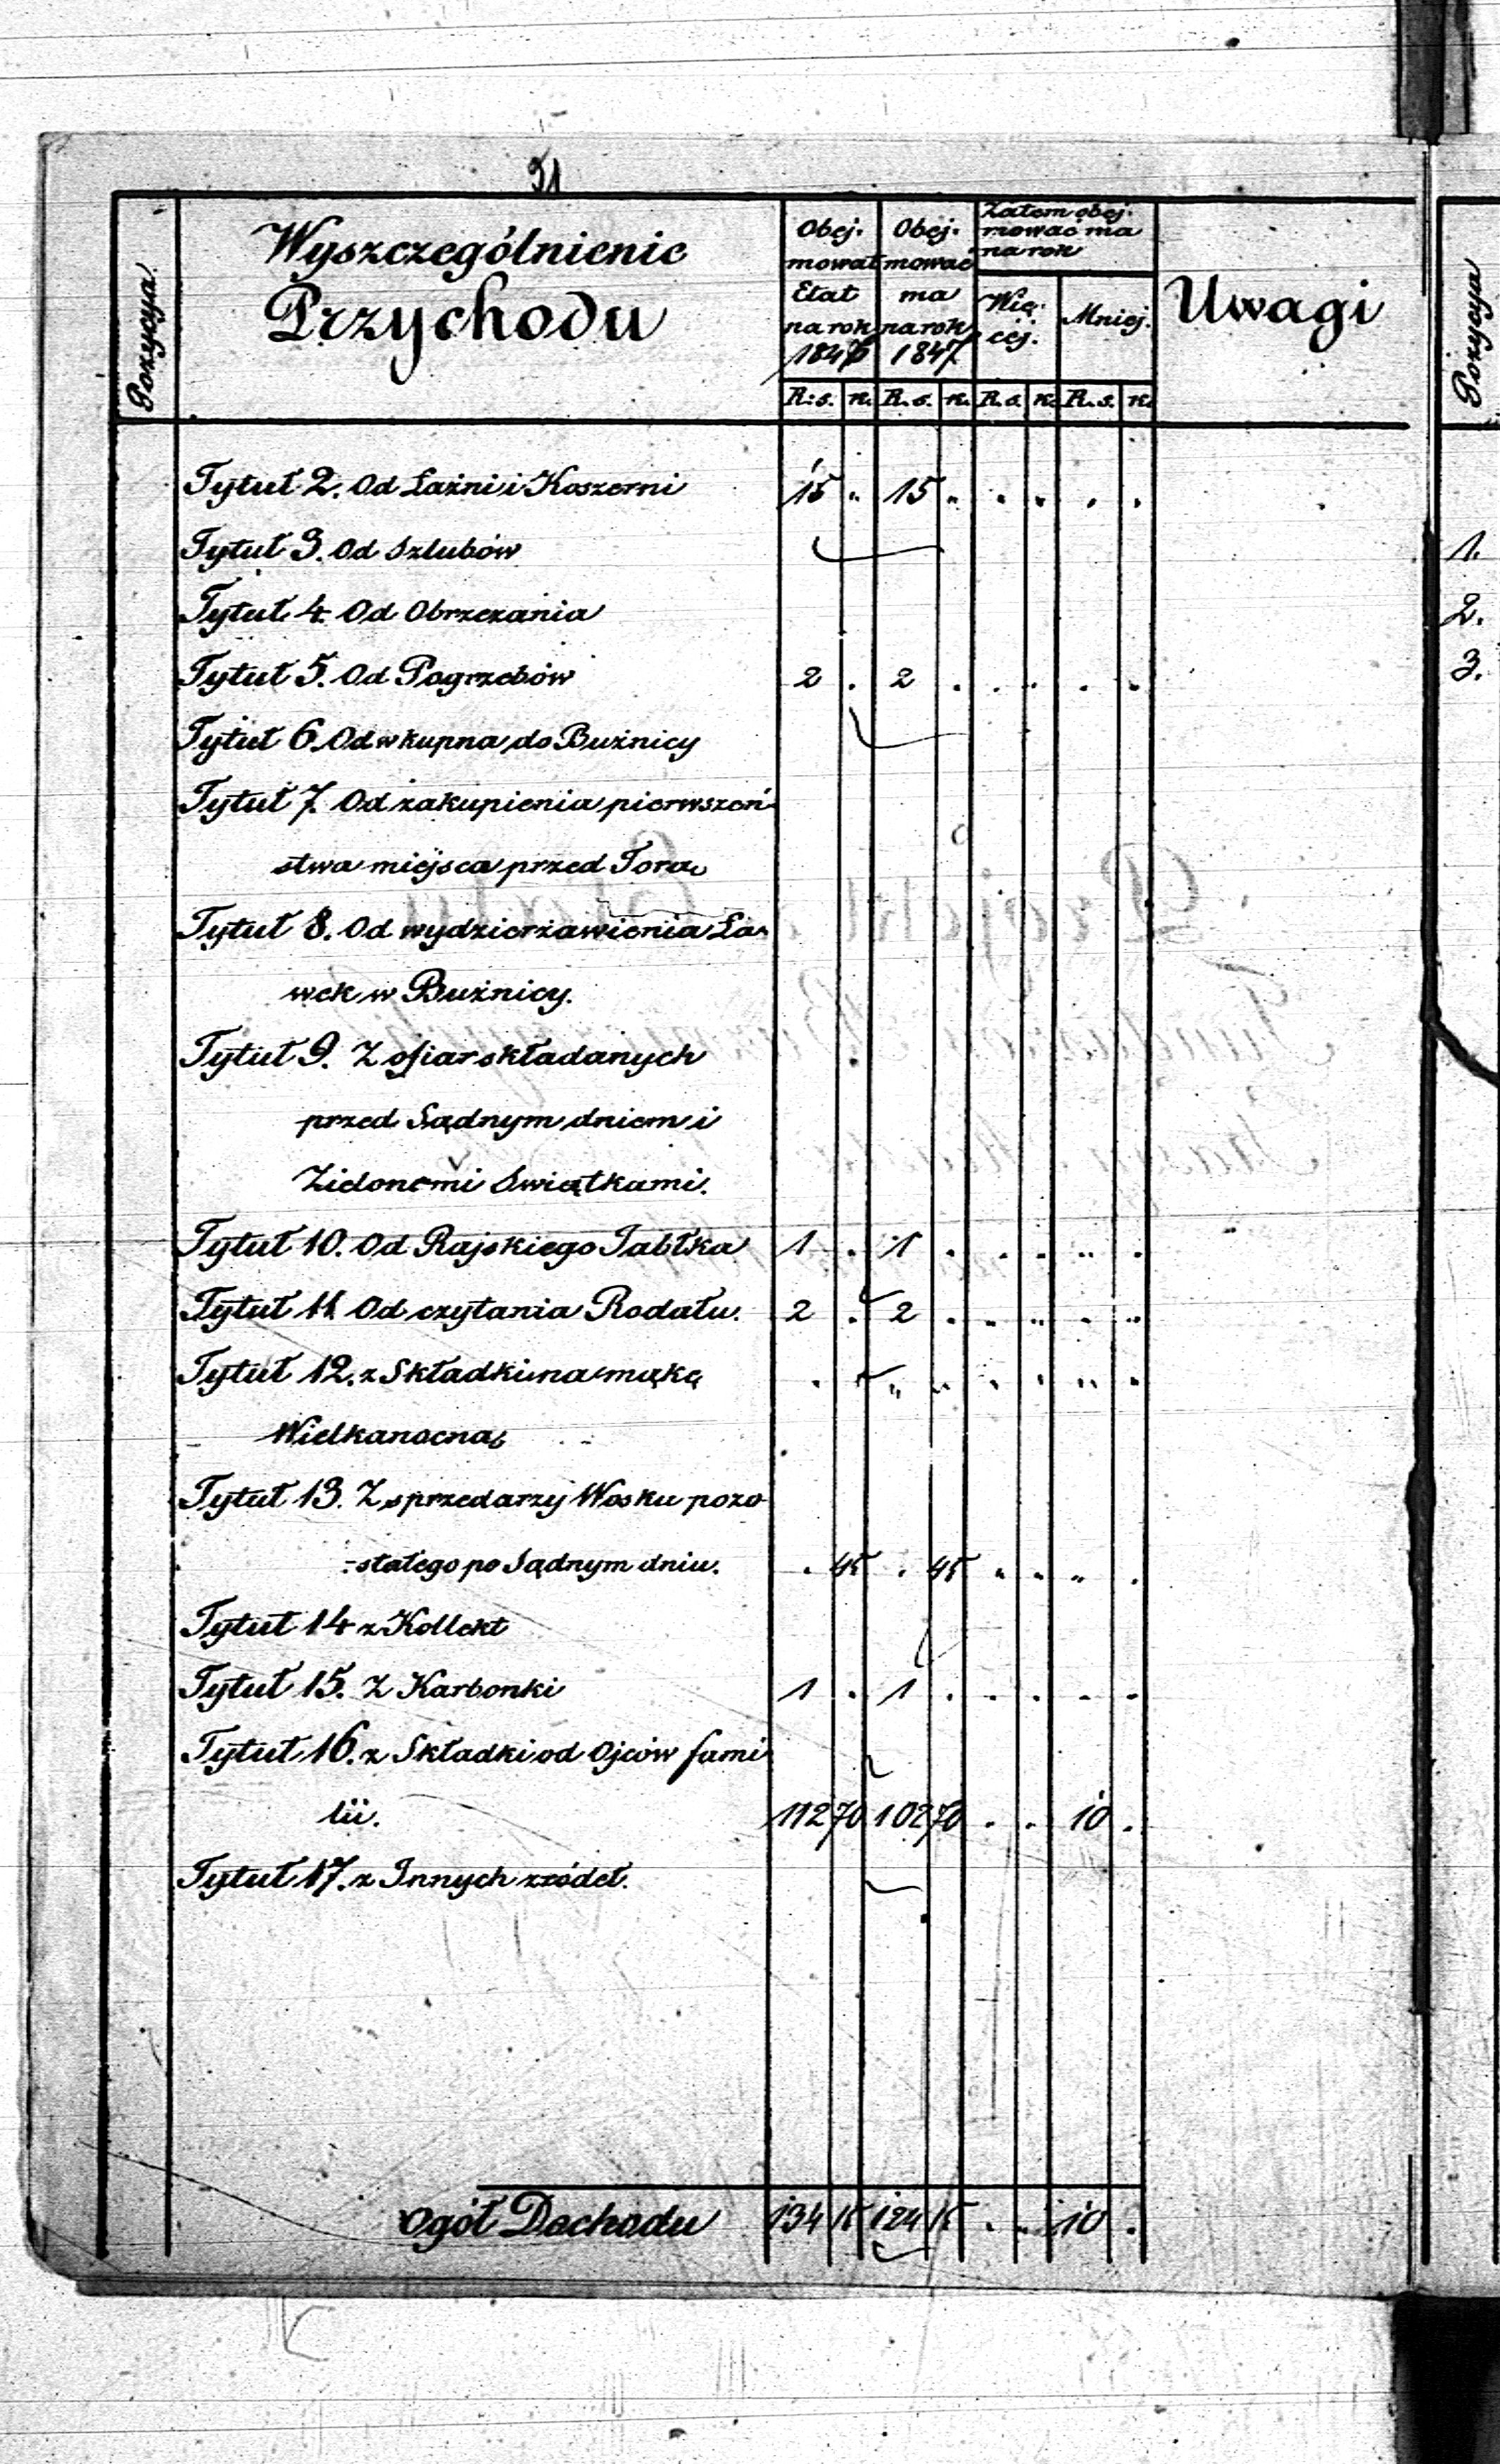 31
Pozycya
Wyszczególnienie
Przychodu
Obej-
mował
Etat
na rok
1846
Obej-
mować
ma
na rok
1847
Zatem obej-
mować ma
na rok
Wię-
cej.
Mniej.
Uwagi
R: s. k. R. s. k. R. s. k. R. s. k.
Tytuł 2. Od Łaźni i Koszerni 15 " 15 " . " . .
Tytuł 3. Od Szlubów
Tytuł 4. Od Obrzezania
Tytuł 5. Od Pogrzebów 2 . 2 . . " . "
Tytuł 6. Od wkupna do Bużnicy
Tytuł 7. Od zakupienia pierwszeń-
stwa miejsca przed Torą
Tytuł 8. Od wydzierżawienia Ła-
wek w Bużnicy.
Tytuł 9. Z ofiar składanych
przed Sądnym dniem i
Zielonemi Swiątkami.
Tytuł 10. Od Rajskiego Jabłka 1 . 1 . . . " .
Tytuł 11. Od czytania Rodału. 2 . 2 . " " . "
Tytuł 12. z Składki na mąkę . " " . . " .
Wielkanocną
Tytuł 13. Z sprzedarzy Wosku pozo-
-stałego po Sądnym dniu. . 45 . 45 " " " .
Tytuł 14 z Kollekt
Tytuł 15. Z Karbonki 1 . 1 . . . . .
Tytuł 16. z Składki od Ojców fami
lii. 112 70 102 70 . . 10 .
Tytuł 17. z Innych zródeł.
Ogół Dochodu 134 15 124 15 . " 10 .
Pozycya
1.
2.
3.